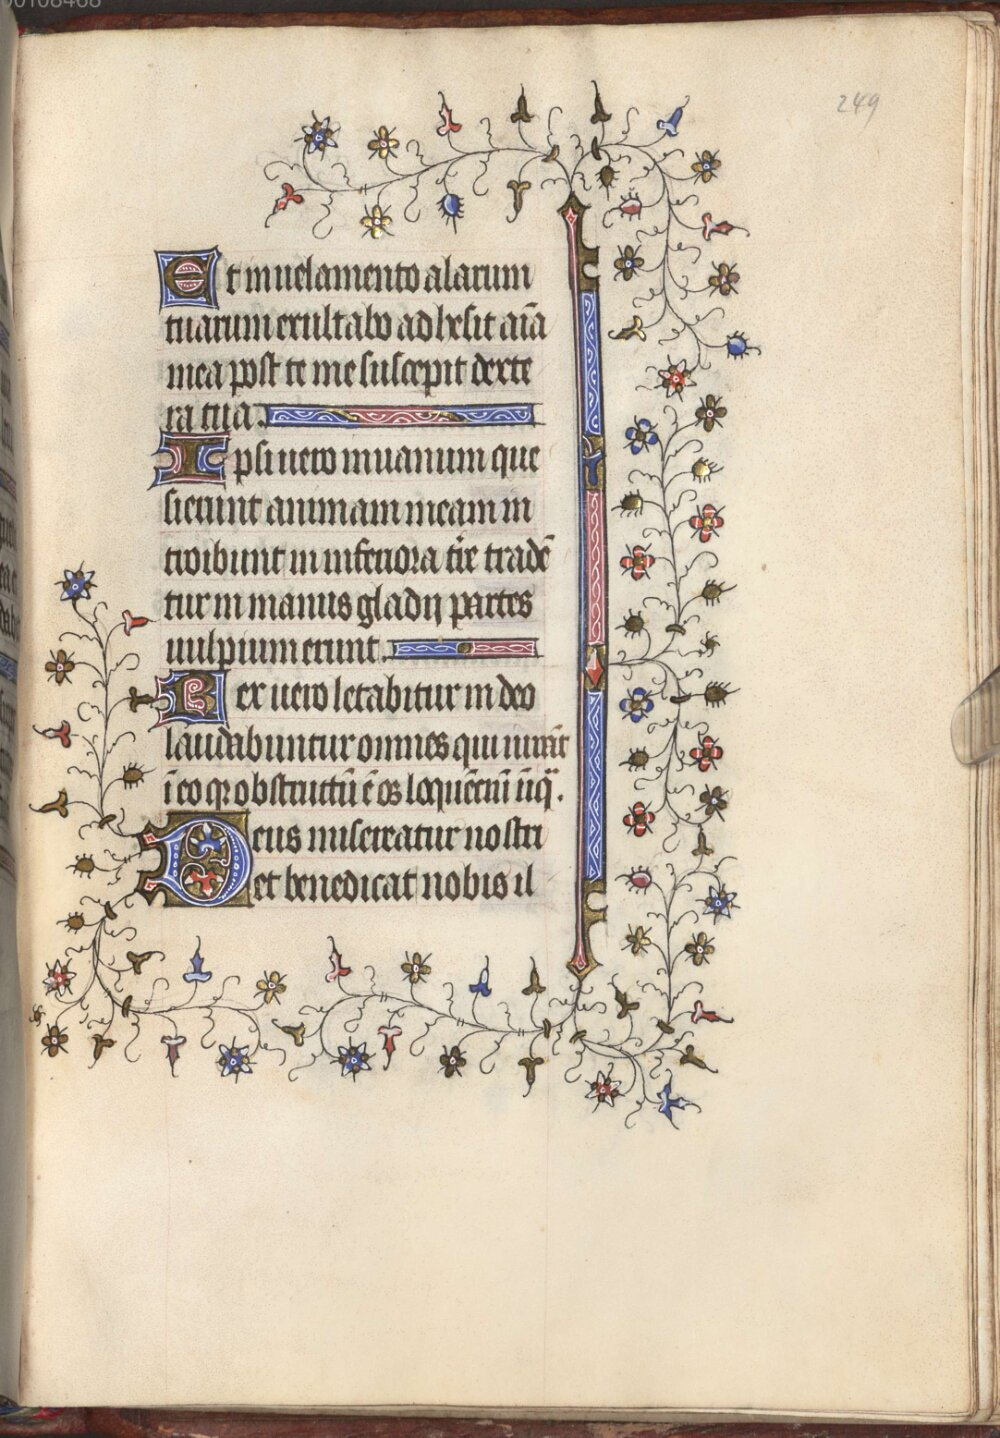 00108468
249
Et in uelamento alarum
tuarum exultabo adhesit aīa
mea post te me suscepit dexte
ra tua.
Ipsi uero in uanum que
sierunt animam meam in
troibunt in inferiora tr̄e tradē
tur in manus gladij partes
uulpium erunt.
Rex uero letabitur in deo
laudabuntur omnes qui iurāt
ī eo qr obstructū ē os loquēciū
Deus misereatur nostri
et benedicat nobis il